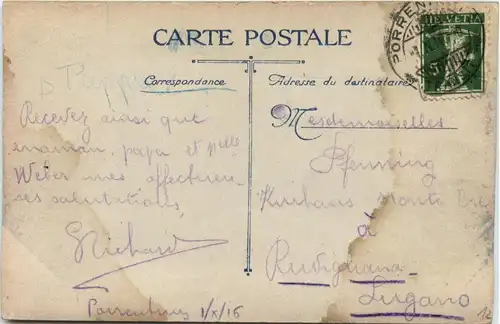 CARTE POSTALE
Correspondance
Adresse du destinataire
HELVETIA
PORREN
Recevez ainsi que
maman, papa et Mlle
Weber mes affectueu
ses salutations
Richard
Porrentruy 1/X/16
Mesdemoiselles
Pfenning
Kurhaus Monte Bre
à
Ruvigliana
Lugano